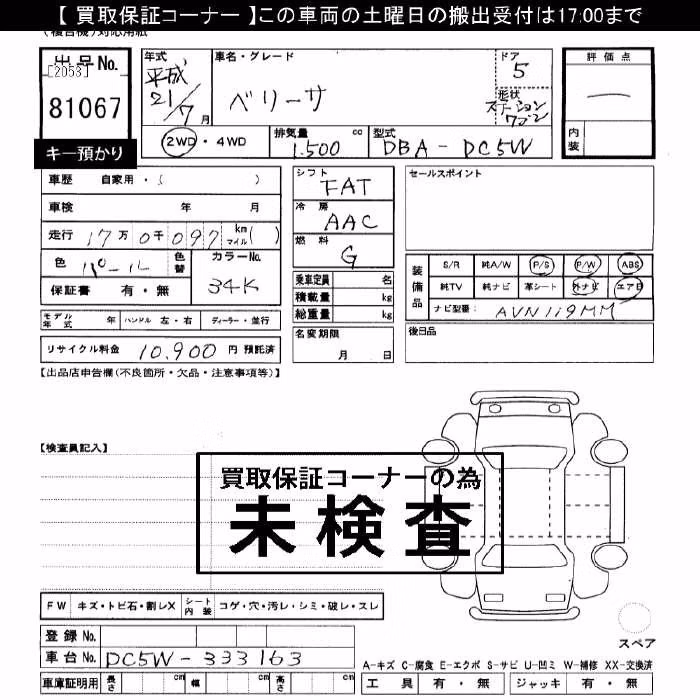 【 買取保証コーナー 】この車両の土曜日の搬出受付は17:00まで
(複合機)対応用紙
出品No.
[2053]
81067
キー預かり
年式
平成
21/7月
車名・グレード
ベリーサ
ドア
5
形状
ステーションワゴン
評価点
―
内装
2WD・4WD
排気量 cc
1.500
型式
DBA-DC5W
車歴 自家用・( )
車検 年 月
走行 17万0千097 km マイル( )
色 パール
色替
カラーNo.
34K
保証書 有・無
シフト
FAT
冷房
AAC
燃料
G
乗車定員 名
積載量 kg
総重量 kg
セールスポイント
装備品
S/R 純A/W P/S P/W ABS
純TV 純ナビ 革シート 外ナビ エアB
ナビ型番: AVN119MM
モデル年式 年 ハンドル 左・右 ディーラー・並行
リサイクル料金 10,900 円 預託済
名変期限
月 日
後日品
【出品店申告欄(不良箇所・欠品・注意事項等)】
【検査員記入】
買取保証コーナーの為
未検査
FW キズ・トビ石・割レX シート内装 コゲ・穴・汚レ・シミ・破レ・スレ
スペア
登録No.
車台No. DC5W-333163
車庫証明用 長さ cm 幅 cm 高さ cm
A-キズ C-腐食 E-エクボ S-サビ U-凹ミ W-補修 XX-交換済
工具 有・無 ジャッキ 有・無